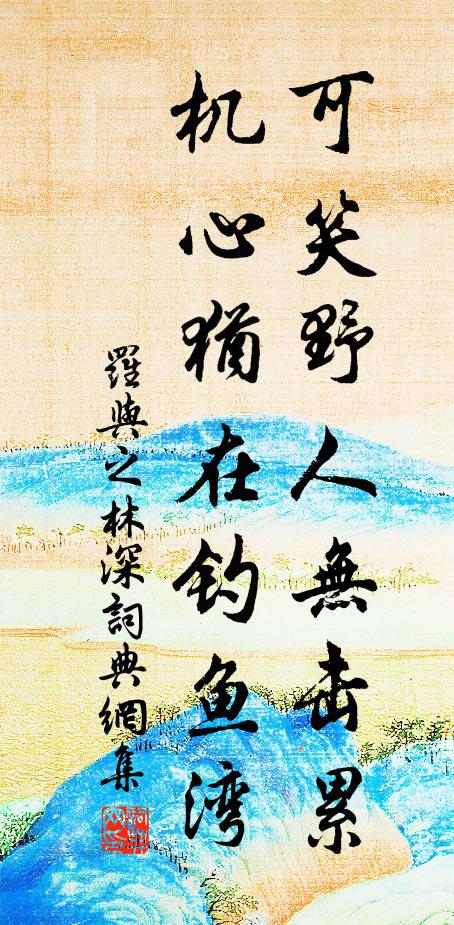 可笑野人無累
机心猶在钓鱼湾
羅與之林深詞典網集